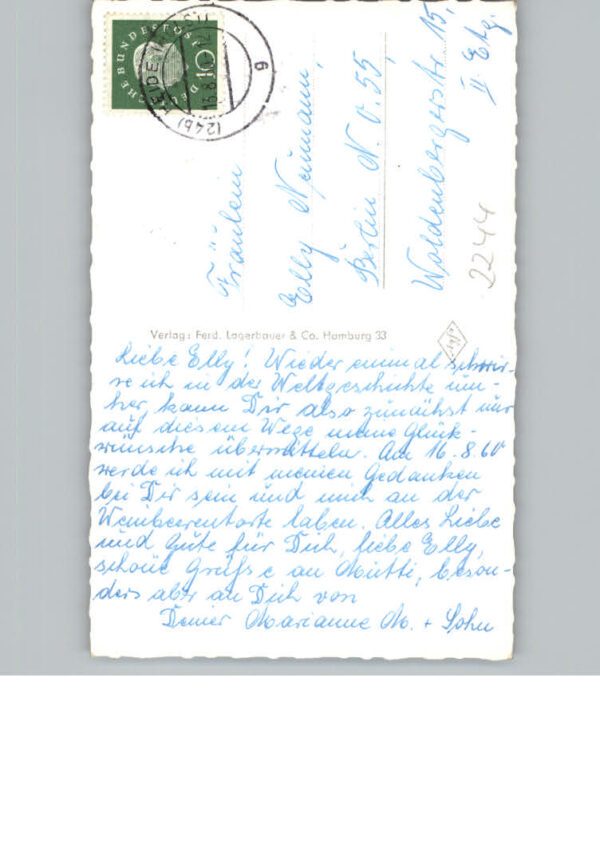 DEUTSCHE BUNDESPOST
10
(24b) HEIDE
6
Fräulein
Elly Neumann,
Berlin N.O. 55,
Woldenbergerstr. 15,
II. Etg.
2244
Verlag: Ferd. Lagerbauer & Co. Hamburg 33
Agfa
Liebe Elly! Wieder einmal schwir-
re ich in der Weltgeschichte um-
her, kann Dir also zunächst nur
auf diesem Wege meine Glück-
wünsche übermitteln. Am 16.8.60
werde ich mit meinen Gedanken
bei Dir sein und mich an der
Weinbeerentorte laben. Alles Liebe
und Gute für Dich, liebe Elly,
schöne Grüße an Mutti, beson-
ders aber an Dich von
Deiner Marianne M. + Sohn